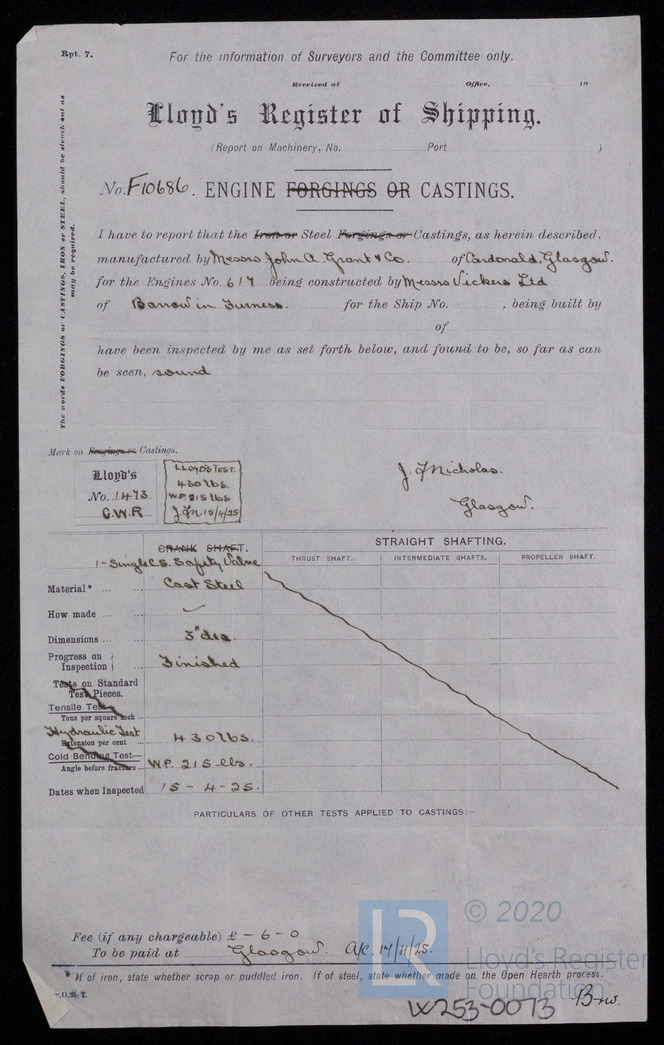 Rpt. 7.
For the information of Surveyors and the Committee only.
Received at Office, 19
Lloyd's Register of Shipping.
(Report on Machinery, No. Port )
The words FORGINGS or CASTINGS, IRON or STEEL, should be struck out as
may be required.
No. F10686. ENGINE FORGINGS OR CASTINGS.
I have to report that the Iron or Steel Forgings or Castings, as herein described,
manufactured by Messrs John A. Grant & Co. of Cardonald, Glasgow.
for the Engines No. 617 being constructed by Messrs Vickers Ltd
of Barrow in Furness. for the Ship No. , being built by
of
have been inspected by me as set forth below, and found to be, so far as can
be seen, sound
Mark on Forgings or Castings.
Lloyd's
No. 1473
C.W.R
LLOYD'S TEST.
430 lbs.
W.P. 215 lbs
J.F.N. 15/4/25
J. F. Nicholas.
Glasgow.
CRANK SHAFT.
STRAIGHT SHAFTING.
THRUST SHAFT. INTERMEDIATE SHAFTS. PROPELLER SHAFT.
1 - Single C.S. Safety Valve
Material* ... ... Cast Steel
How made ... ...
Dimensions ... ... 3" dia.
Progress on Inspection ... Finished
Tests on Standard
Test Pieces.
Tensile Test
Tons per square inch ...
Hydraulic Test
Extension per cent ... 430 lbs.
Cold Bending Test—
Angle before fracture ... W.P. 215 lbs.
Dates when Inspected 15 - 4 - 25.
PARTICULARS OF OTHER TESTS APPLIED TO CASTINGS:—
Fee (if any chargeable) £ - 6 - 0
To be paid at Glasgow. A/c. 17/4/25.
* If of iron, state whether scrap or puddled iron. If of steel, state whether made on the Open Hearth process.
W253-0073
LR
© 2020
Lloyd's Register
Foundation